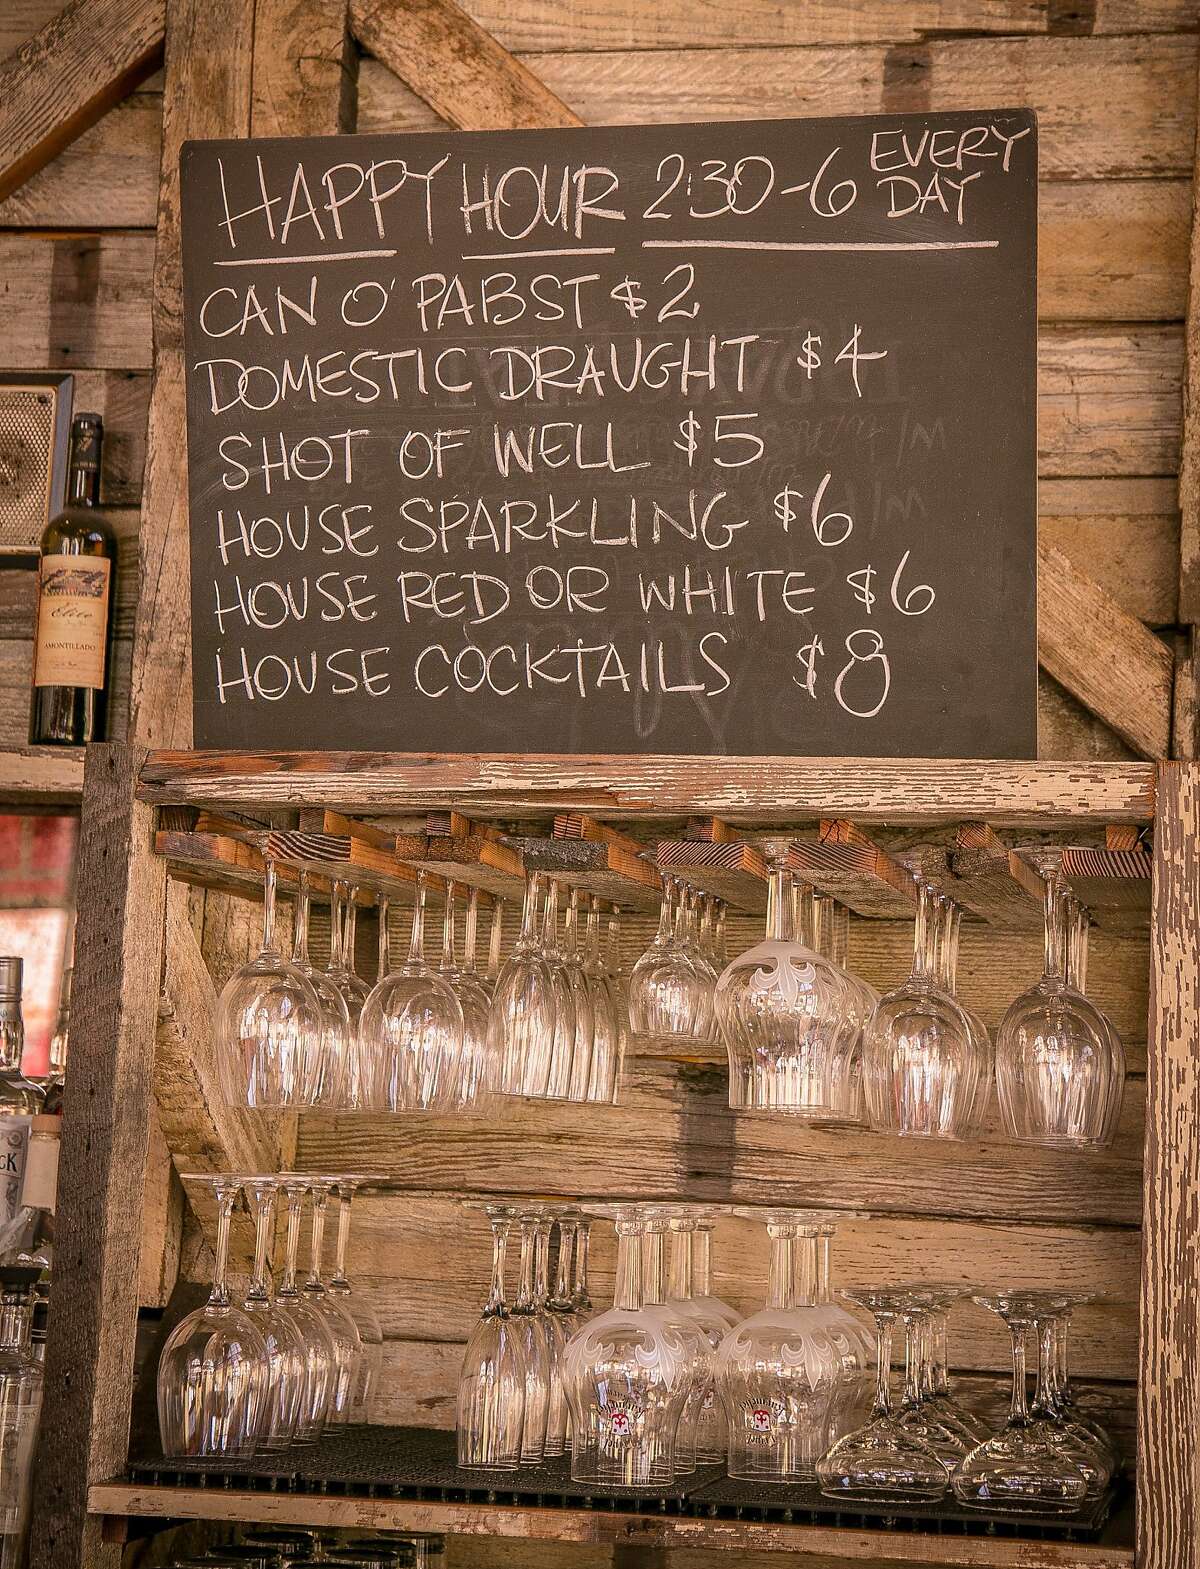 HAPPY HOUR 2:30-6 EVERY DAY
CAN O' PABST $2
DOMESTIC DRAUGHT $4
SHOT OF WELL $5
HOUSE SPARKLING $6
HOUSE RED OR WHITE $6
HOUSE COCKTAILS $8
Élite
AMONTILLADO
CK